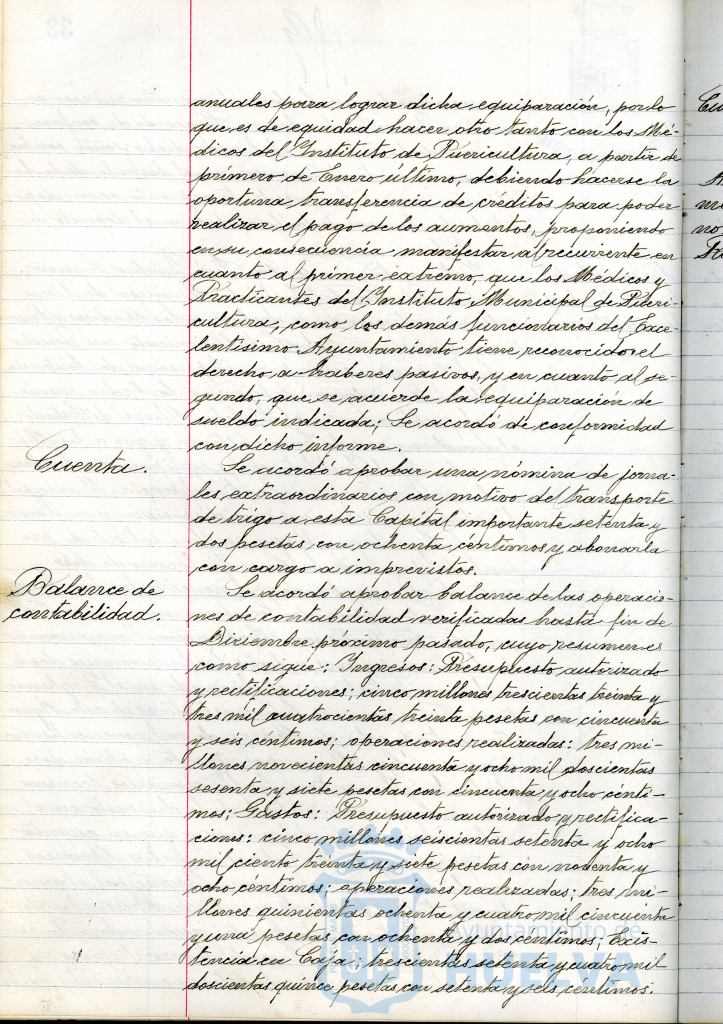 anuales para lograr dicha equiparación, por lo
que es de equidad hacer otro tanto con los Mé-
dicos del Instituto de Puericultura, a partir de
primero de Enero último, debiendo hacerse la
oportuna transferencia de créditos para poder
realizar el pago de los aumentos, proponiendo
en su consecuencia manifestar al recurrente en
cuanto al primer extremo, que los Médicos y
Practicantes del Instituto Municipal de Pueri-
cultura, como los demás funcionarios del Exce-
lentísimo Ayuntamiento tiene reconocidos el
derecho a haberes pasivos, y en cuanto al se-
gundo, que se acuerde la equiparación de
sueldo indicada; Se acordó de conformidad
con dicho informe.
Cuenta.
Se acordó aprobar una nómina de jorna-
les extraordinarios con motivo del transporte
de trigo a esta Capital importante setenta y
dos pesetas con ochenta céntimos y abonarla
con cargo a imprevistos.
Balance de
contabilidad.
Se acordó aprobar balance de las operacio-
nes de contabilidad verificadas hasta fin de
Diciembre próximo pasado, cuyo resumen es
como sigue: Ingresos: Presupuesto autorizado
y rectificaciones; cinco millones trescientas treinta y
tres mil cuatrocientas treinta pesetas con cincuenta
y seis céntimos; operaciones realizadas: tres mi-
llones novecientas cincuenta y ocho mil doscientas
sesenta y siete pesetas con cincuenta y ocho cénti-
mos; Gastos: Presupuesto autorizado y rectifica-
ciones: cinco millones seiscientas setenta y ocho
mil ciento treinta y siete pesetas con noventa y
ocho céntimos; operaciones realizadas; tres mi-
llones quinientas ochenta y cuatro mil cincuenta
y una pesetas con ochenta y dos centimos; Exis-
tencia en Caja: trescientas setenta y cuatro mil
doscientas quince pesetas con setenta y seis centimos.
Ayuntamiento de
HUELVA